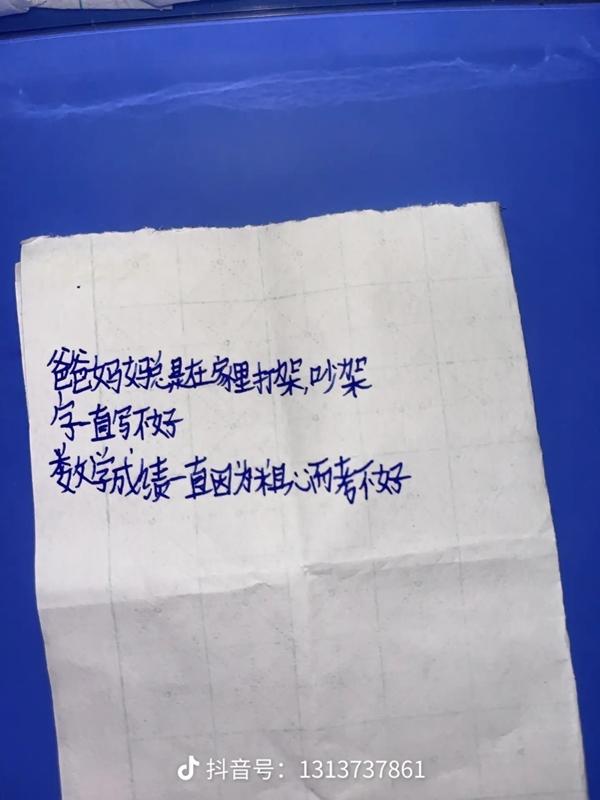 爸爸妈妈总是在家里打架,吵架
字一直写不好
数学成绩一直因为粗心而考不好
抖音号：1313737861